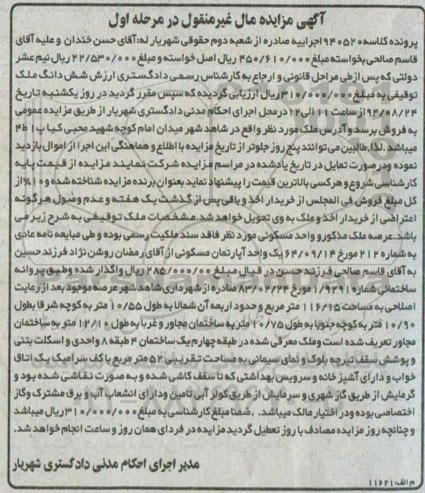 آگهی مزایده مال غیرمنقول در مرحله اول
پرونده کلاسه ۹۴۰۵۲۰ اجراییه صادره از شعبه دوم حقوقی شهریار له: آقای حسن خندان و علیه آقای
قاسم صالحی بخواسته مبلغ ۴۵۰/۶۱۰/۰۰۰ ریال اصل خواسته و مبلغ ۲۲/۵۳۰/۰۰۰ ریال نیم عشر
دولتی که پس از طی مراحل قانونی و ارجاع به کارشناس رسمی دادگستری ارزش شش دانگ ملک
توقیفی به مبلغ ۳۱۰/۰۰۰/۰۰۰ ریال ارزیابی گردیده که سپس مقرر گردید در روز یکشنبه تاریخ
۹۴/۰۸/۲۴ از ساعت ۱۱ الی ۱۲ در محل اجرای احکام مدنی دادگستری شهریار از طریق مزایده عمومی
به فروش برسد و آدرس ملک مورد نظر واقع در شاهد شهر میدان امام کوچه شهید محبی کیا پ ۱ ط ۴
میباشد. لذا، طالبین می توانند پنج روز جلوتر از تاریخ مزایده با اطلاع و هماهنگی این اجرا از اموال بازدید
نموده و در صورت تمایل در تاریخ یادشده در مراسم مزایده شرکت نمایند مزایده از قیمت پایه
کارشناسی شروع و هرکسی بالاترین قیمت را پیشنهاد نماید بعنوان برنده مزایده شناخته شده و ۱۰% از
کل مبلغ فروش فی المجلس از خریدار اخذ و باقی پس از گذشت یک هفته و عدم وصول هرگونه
اعتراضی از خریدار اخذ و ملک به وی تحویل خواهد شد. مشخصات ملک توقیفی به شرح زیر می
باشد. عرصه ملک مذکور و واحد مسکونی مورد نظر فاقد سند ملکیت رسمی بوده و طی مبایعه نامه عادی
به شماره ۲۱۲ مورخ ۶۴/۰۹/۱۴ یک واحد آپارتمان مسکونی از آقای رمضان روشن نژاد فرزند حسین
به آقای قاسم صالحی فرزند حسن در قبال مبلغ ۲۸۵/۰۰۰/۰۰۰ ریال واگذار شده و طبق پروانه
ساختمانی شماره ۱/۹۲۹۱ مورخ ۸۳/۰۲/۲۴ صادره از شهرداری شاهد شهر عرصه موجود بعد از رعایت
اصلاحی به مساحت ۱۱۶/۱۵ متر مربع و حدود اربعه آن شمالا به طول ۱۰/۵۵ متر به کوچه شرقا بطول
۱۰/۹۰ متر به کوچه جنوبا به طول ۱۰/۷۵ متر به ساختمان مجاور و غربا به طول ۱۲/۱۰ متر به ساختمان
مجاور تعریف شده است و ملک معرفی شده در طبقه چهارم یک ساختمان ۴ طبقه ۸ واحدی و اسکلت بتنی
و پوشش سقف تیرچه بلوک و نمای سیمانی به مساحت تقریبی ۵۲ متر مربع با کف سرامیک یک اتاق
خواب و دارای آشپزخانه و سرویس بهداشتی که تا سقف کاشی شده و به صورت نقاشی شده بود و
گرمایش از طریق گاز شهری و سرمایش از طریق کولر آبی تامین ودارای انشعاب آب و برق مشترک وگاز
اختصاصی بوده ودر اختیار مالک میباشد. . ضمنا مبلغ کارشناسی به مبلغ ۳۱۰/۰۰۰/۰۰۰ ریال میباشد
و چنانچه روز مزایده مصادف با روز تعطیل گردید مزایده در فردای همان روز و ساعت انجام خواهد شد.
مدیر اجرای احکام مدنی دادگستری شهریار
م الف: ۱۱۶۲۱